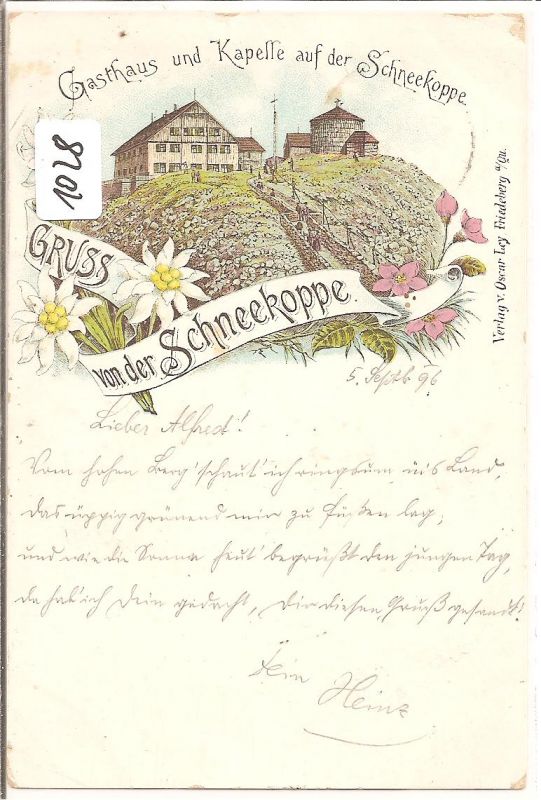 Gasthaus und Kapelle auf der Schneekoppe.
1028
GRUSS
von der Schneekoppe.
Verlag v. Oscar Ley Friedeberg a/Qu.
5. Septb. 96
Lieber Alfred!
Vom hohen Berg 'schaut' ich ringsum ins Land,
das üppig grünend mir zu Füßen lag;
und wie die Sonne heut' begrüßt den jungen Tag,
da hab' ich Dein gedacht, Dir diesen Gruß gesandt!
Dein
Heinz